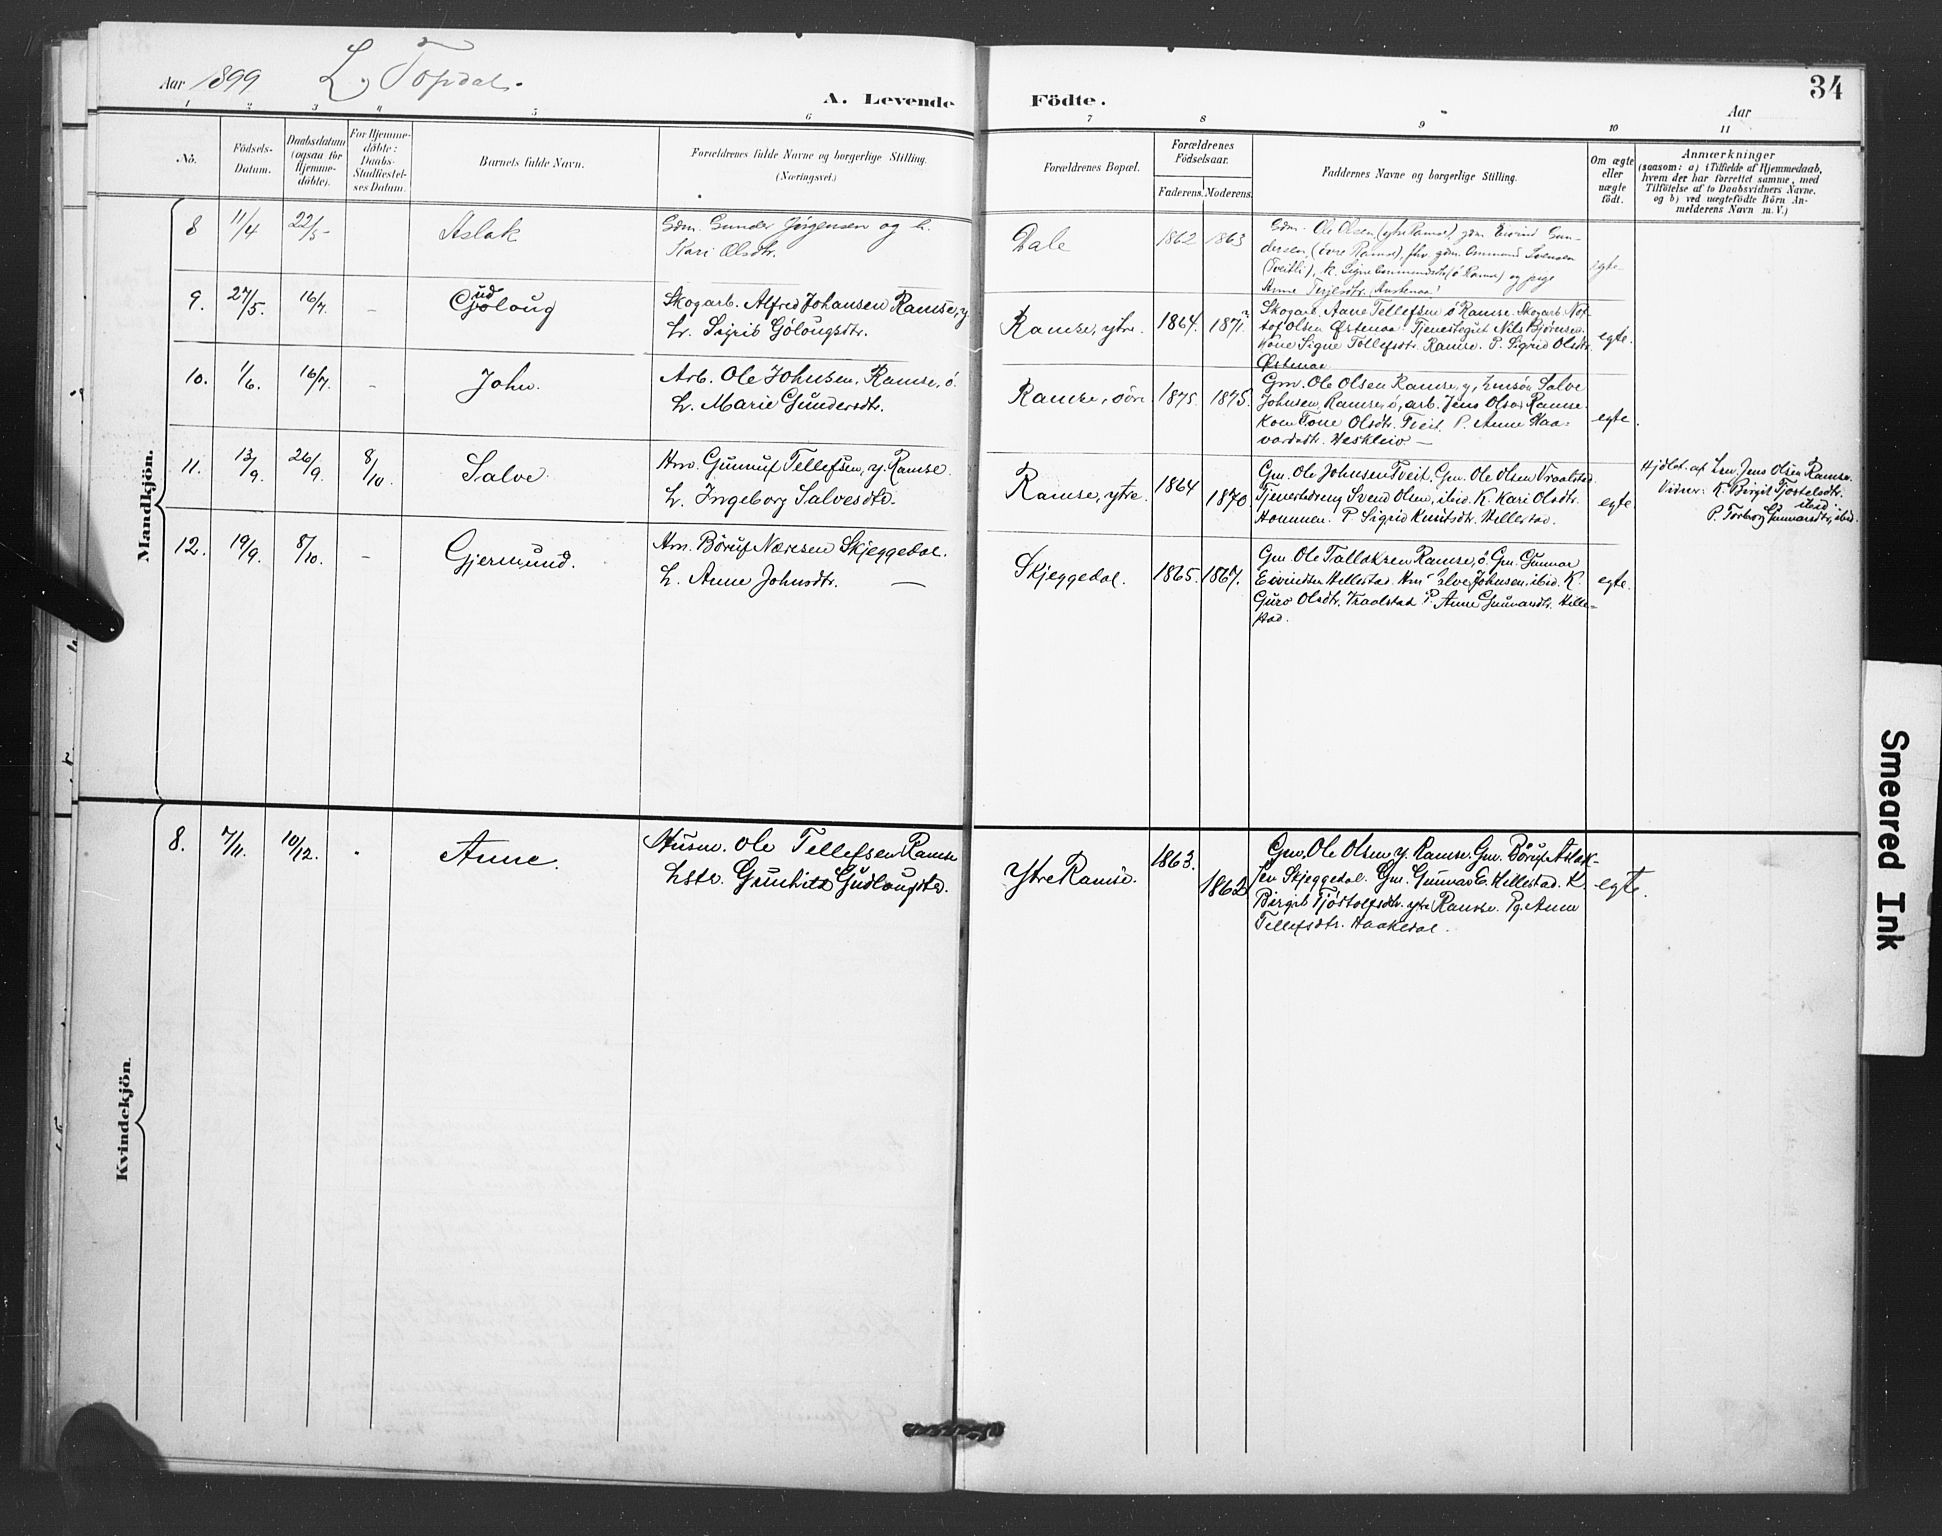 Aar 1899 L. Topdal.
A. Levende Födte.
34
Aar
1 2 3 4 5 6 7 8 9 10 11
No.
Födsels-
Datum.
Daabsdatum
(ogsaa for
Hjemme-
döbte).
For Hjemme-
döbte:
Daabs-
Stadfæstel-
ses Datum.
Barnets fulde Navn.
Forældrenes fulde Navne og borgerlige Stilling.
(Næringsvei.)
Forældrenes Bopæl.
Forældrenes
Födselsaar.
Faderens. Moderens.
Faddernes Navne og borgerlige Stilling.
Om ægte
eller
uægte
födt.
Anmærkninger
(saasom: a) i Tilfælde af Hjemmedaab,
hvem der har forrettet samme, med
Tilföielse af to Daabsvidners Navne,
og b) ved uægtefödte Börn An-
melderens Navn m. V.)
Mandkjön.
8 11/4 22/5 - Aslak
Gdm. Gunder Jörgensen og h.
Kari Olsdtr.
Dale 1862 1863
Gdm. Ole Olsen (ytre Ramse), gdm. Eivind Gun-
dersen (övre Ramse), fhv. gdm. Ommund Svensen
(Tveitli), k. Signe Ommundsdtr (ö Ramse) og pige
Anne Terjesdtr.
egte
9. 27/5. 16/7. - Göloug
ud
Skogarb. Alfred Johansen Ramse, y.
h. Sigrid Gölougsdtr.
Ramse, ytre. 1864. 1871.
Skogarb. Aane Tellefsen ö Ramse. Skogarb. No-
tof Olsen Östenaa. Tjenestegut Nils Björnsen.
Kone Signe Tollefsdtr. Ramse. P. Sigrid Olsdtr.
Östenaa
egte.
10. 1/6. 16/7. - John.
Arb. Ole Johnsen, Ramse, ö.
h. Marie Gundersdtr.
Ramse, övre 1875. 1875.
Gm. Ole Olsen Ramse, y, Salve
Johnsen, Ramse, ö, arb. Jens Olsen Ramse.
Kone Tone Olsdtr. Tveit. P. Anne Haa-
vardsdtr. Heskleiv —
egte.
11. 13/9. 26/9. 8/10. Salve.
Hm. Gunnuf Tellefsen, y. Ramse.
h. Ingeborg Salvesdtr.
Ramse, ytre. 1864 1870.
Gm. Ole Johnsen Tveit. Gm. Ole Olsen Vraalstad.
Tjenestedreng Svend Olsen, ibid. K. Kari Olsdtr.
Hommen. P. Sigrid Knutsdtr. Hillestad.
egte.
Hjdöbt. af Jens Olsen Ramse.
Vidner: K. Birgit Tjöstelsdtr.
ibid.
P. Torborg Gunvaredtr., ibid.
12. 19/9. 8/10. - Gjermund.
Hm. Böruf Næresen Skjeggedal.
h. Anne Johnsdtr. —
Skjeggedal. 1865. 1867.
Gm. Ole Tallaksen Ramse, ö. Gm. Gunnar
Eivindsen Hillestad. Hm. Salve Johnsen, ibid. K.
Guro Olsdtr. Vraalstad P. Anne Gunnarsdtr. Hille-
stad.
egte.
Kvindekjön.
8. 7/11. 10/12. . Anne.
Husm. Ole Tellefsen Ramse
hstr. Gunhild Gudlougsdtr.
Ytre Ramse. 1863. 1862
Gm. Ole Olsen y. Ramse. Gm. Böruf Aslak-
sen Skjeggedal. Gm. Gunnar E. Hillestad. K.
Birgit Tjöstolfsdtr. ytre Ramse. Pg. Anne
Tellefsdtr. Haakedal.
egte.
Smeared Ink